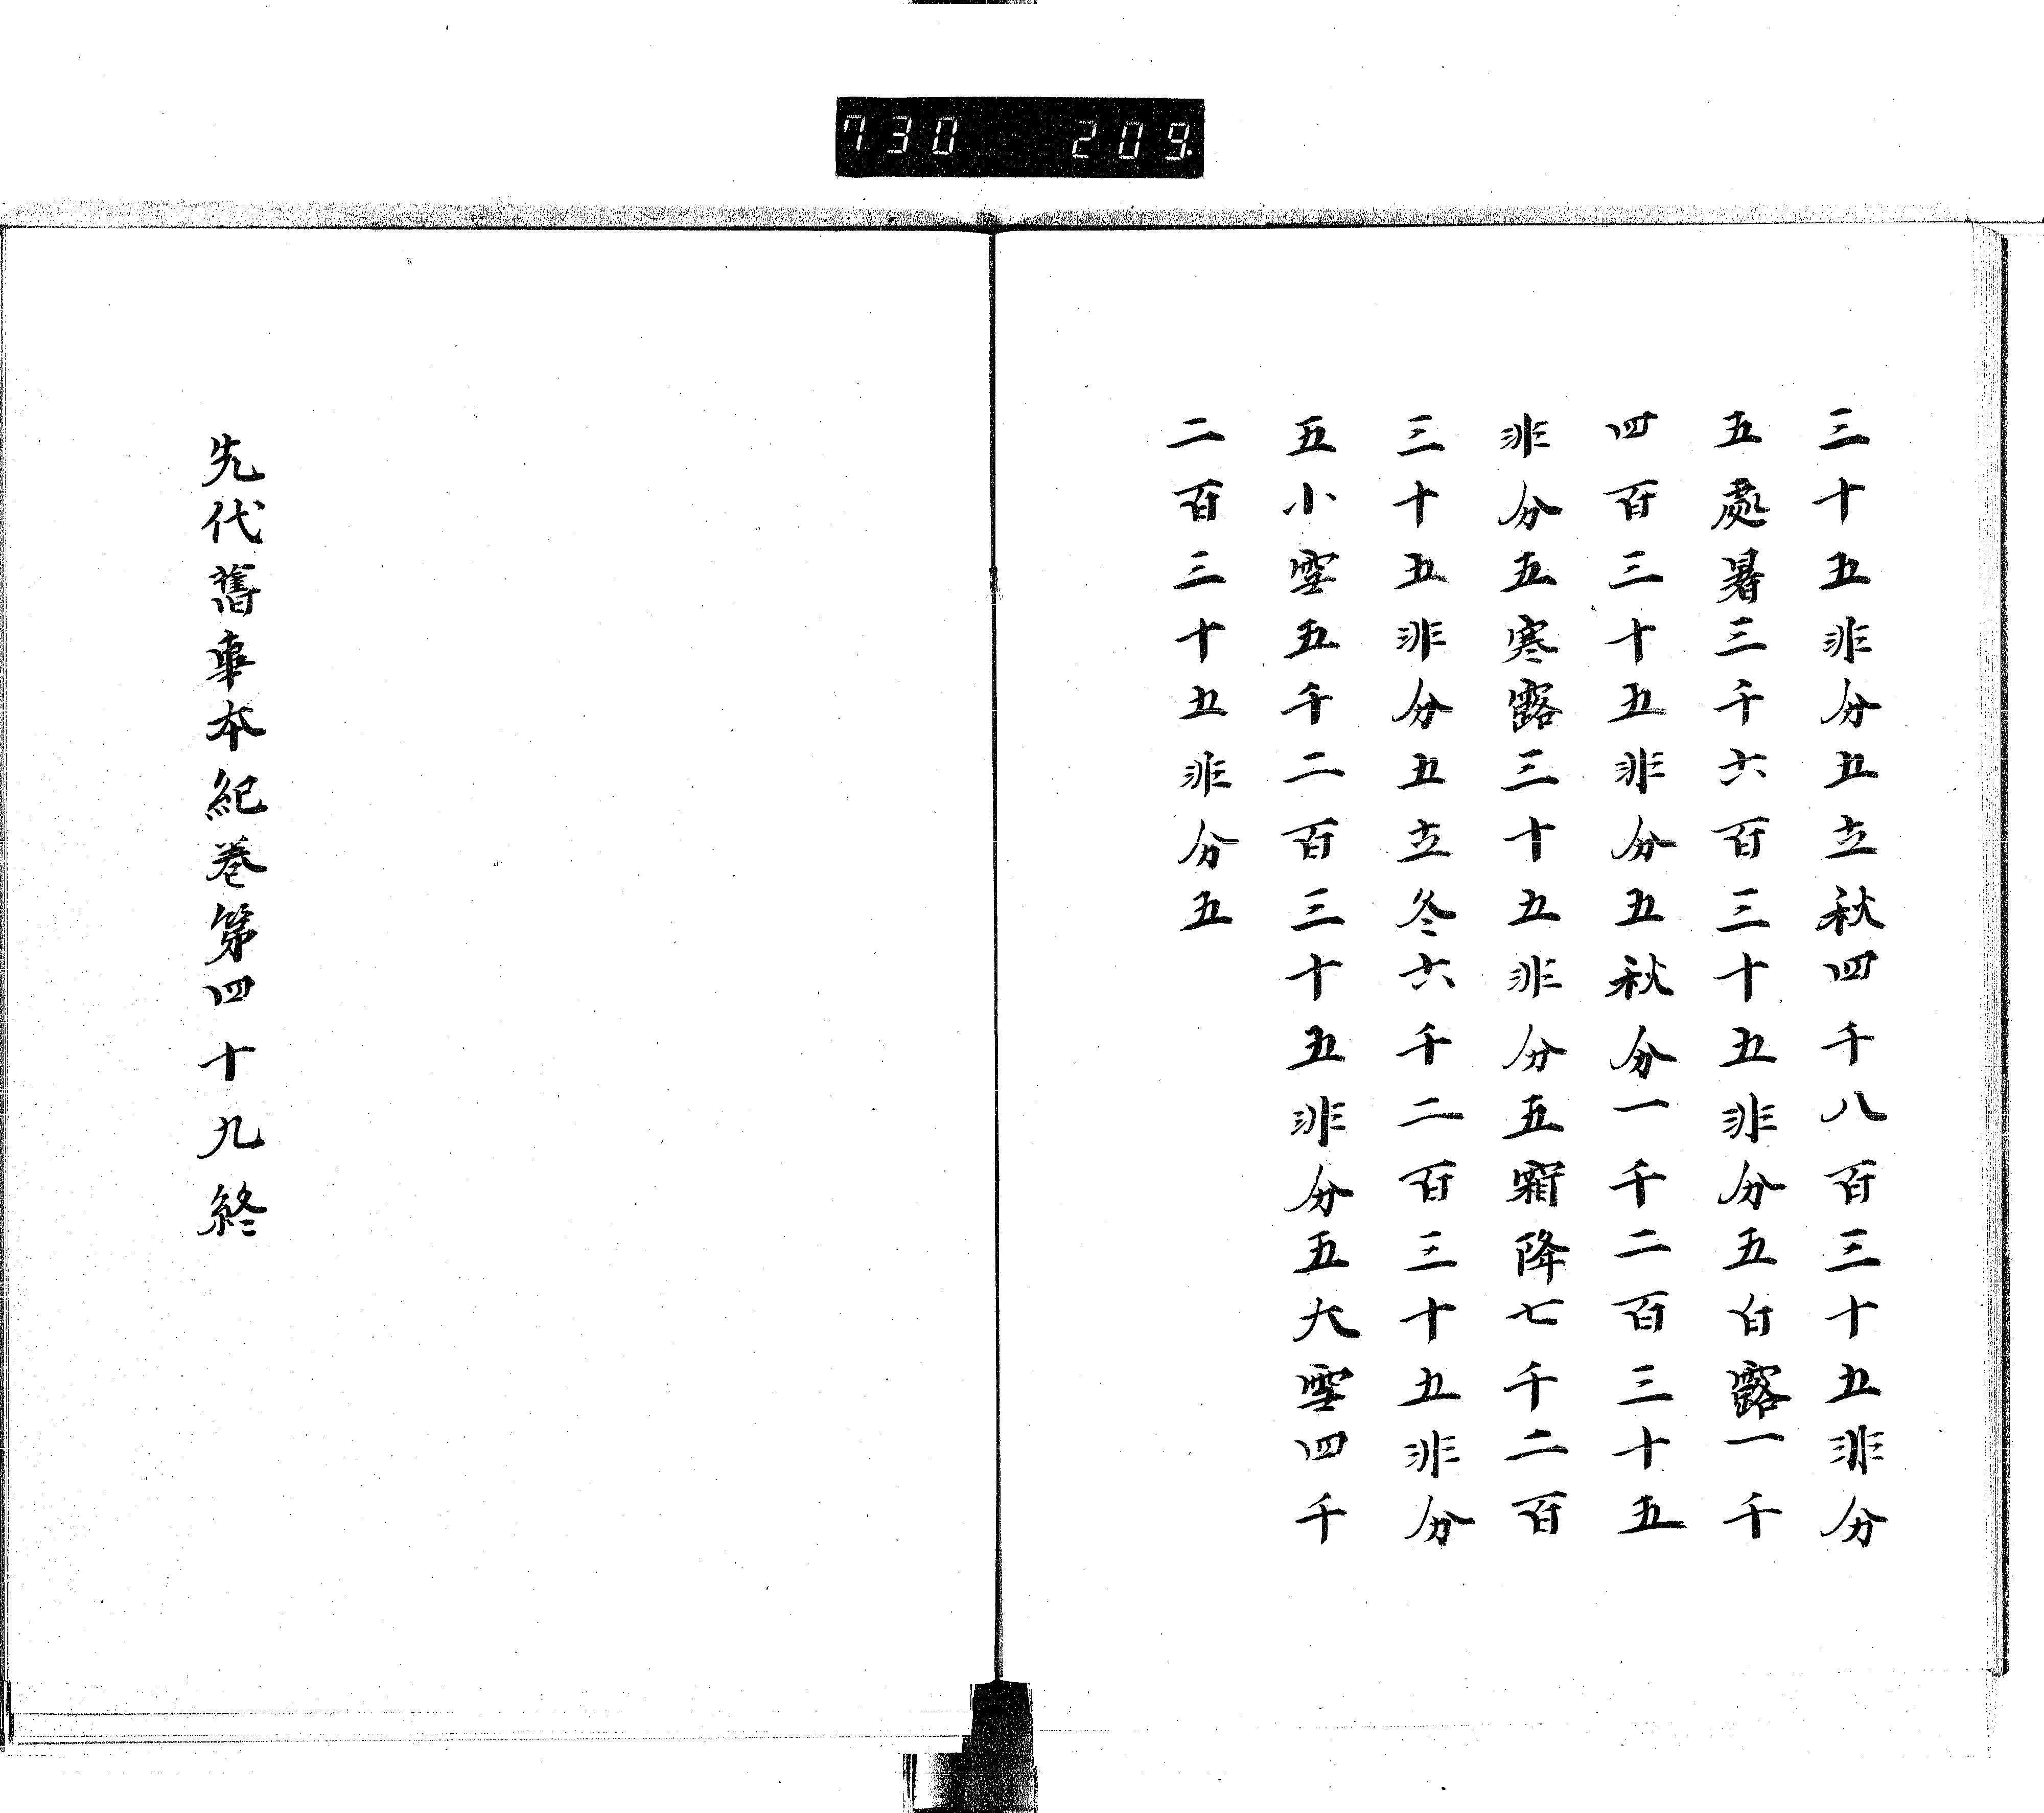 730 209
三十五非分五立秋四千八百三十五非分
五處暑三千六百三十五非分五白露一千
四百三十五非分五秋分一千二百三十五
非分五寒露三十五非分五霜降七千二百
三十五非分五立冬六千二百三十五非分
五小雪五千二百三十五非分五大雪四千
二百三十五非分五
先代舊事本紀巻第四十九終